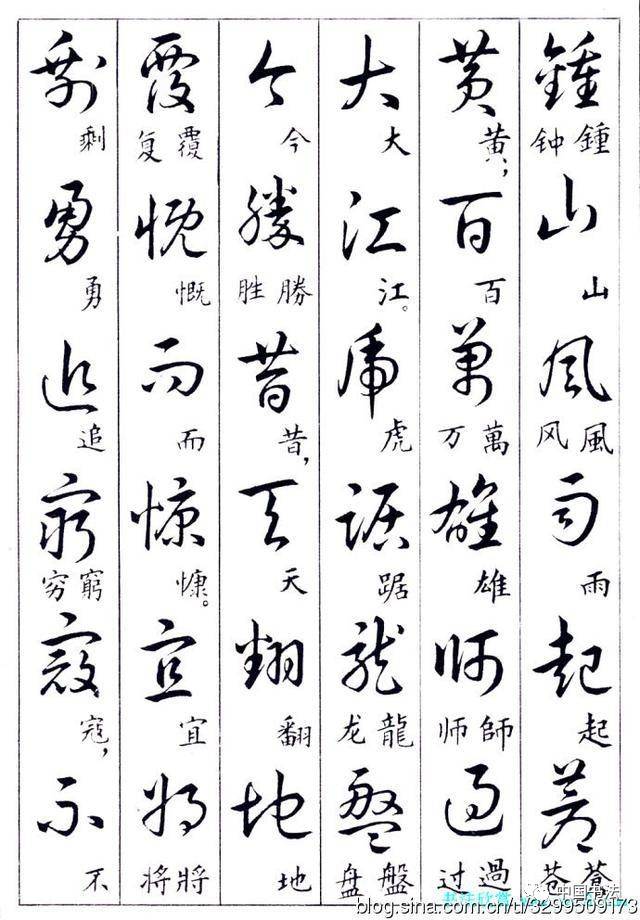 鍾 鍾 钟 山 山 風 風 风 雨 雨 起 起 蒼 蒼 苍
黄 黄， 百 百 萬 萬 万 雄 雄 師 師 师 過 過 过
大 大 江 江。 虎 虎 踞 踞 龍 龍 龙 盤 盤 盘
今 今 勝 勝 胜 昔 昔， 天 天 翻 翻 地 地
覆 覆 复 慨 慨 而 而 慷 慷。 宜 宜 將 將 将
剩 剩 勇 勇 追 追 窮 窮 穷 寇 寇， 不 不
中国书法
书法欣赏
blog.sina.com.cn/u/3299509173